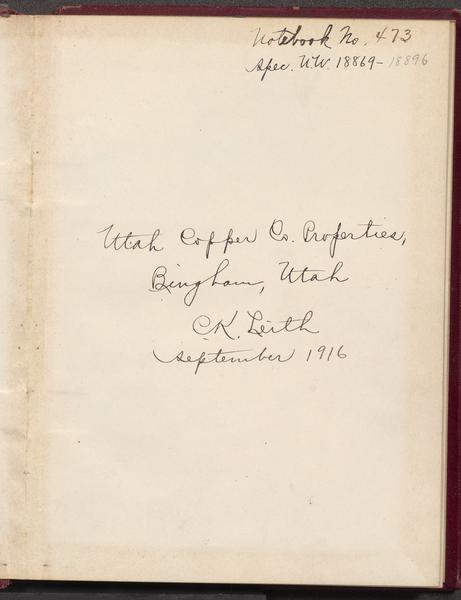 Notebook No. 473
Spec. U.W. 18869-18896
Utah Copper Co. Properties,
Bingham, Utah
C.K. Leith
September 1916